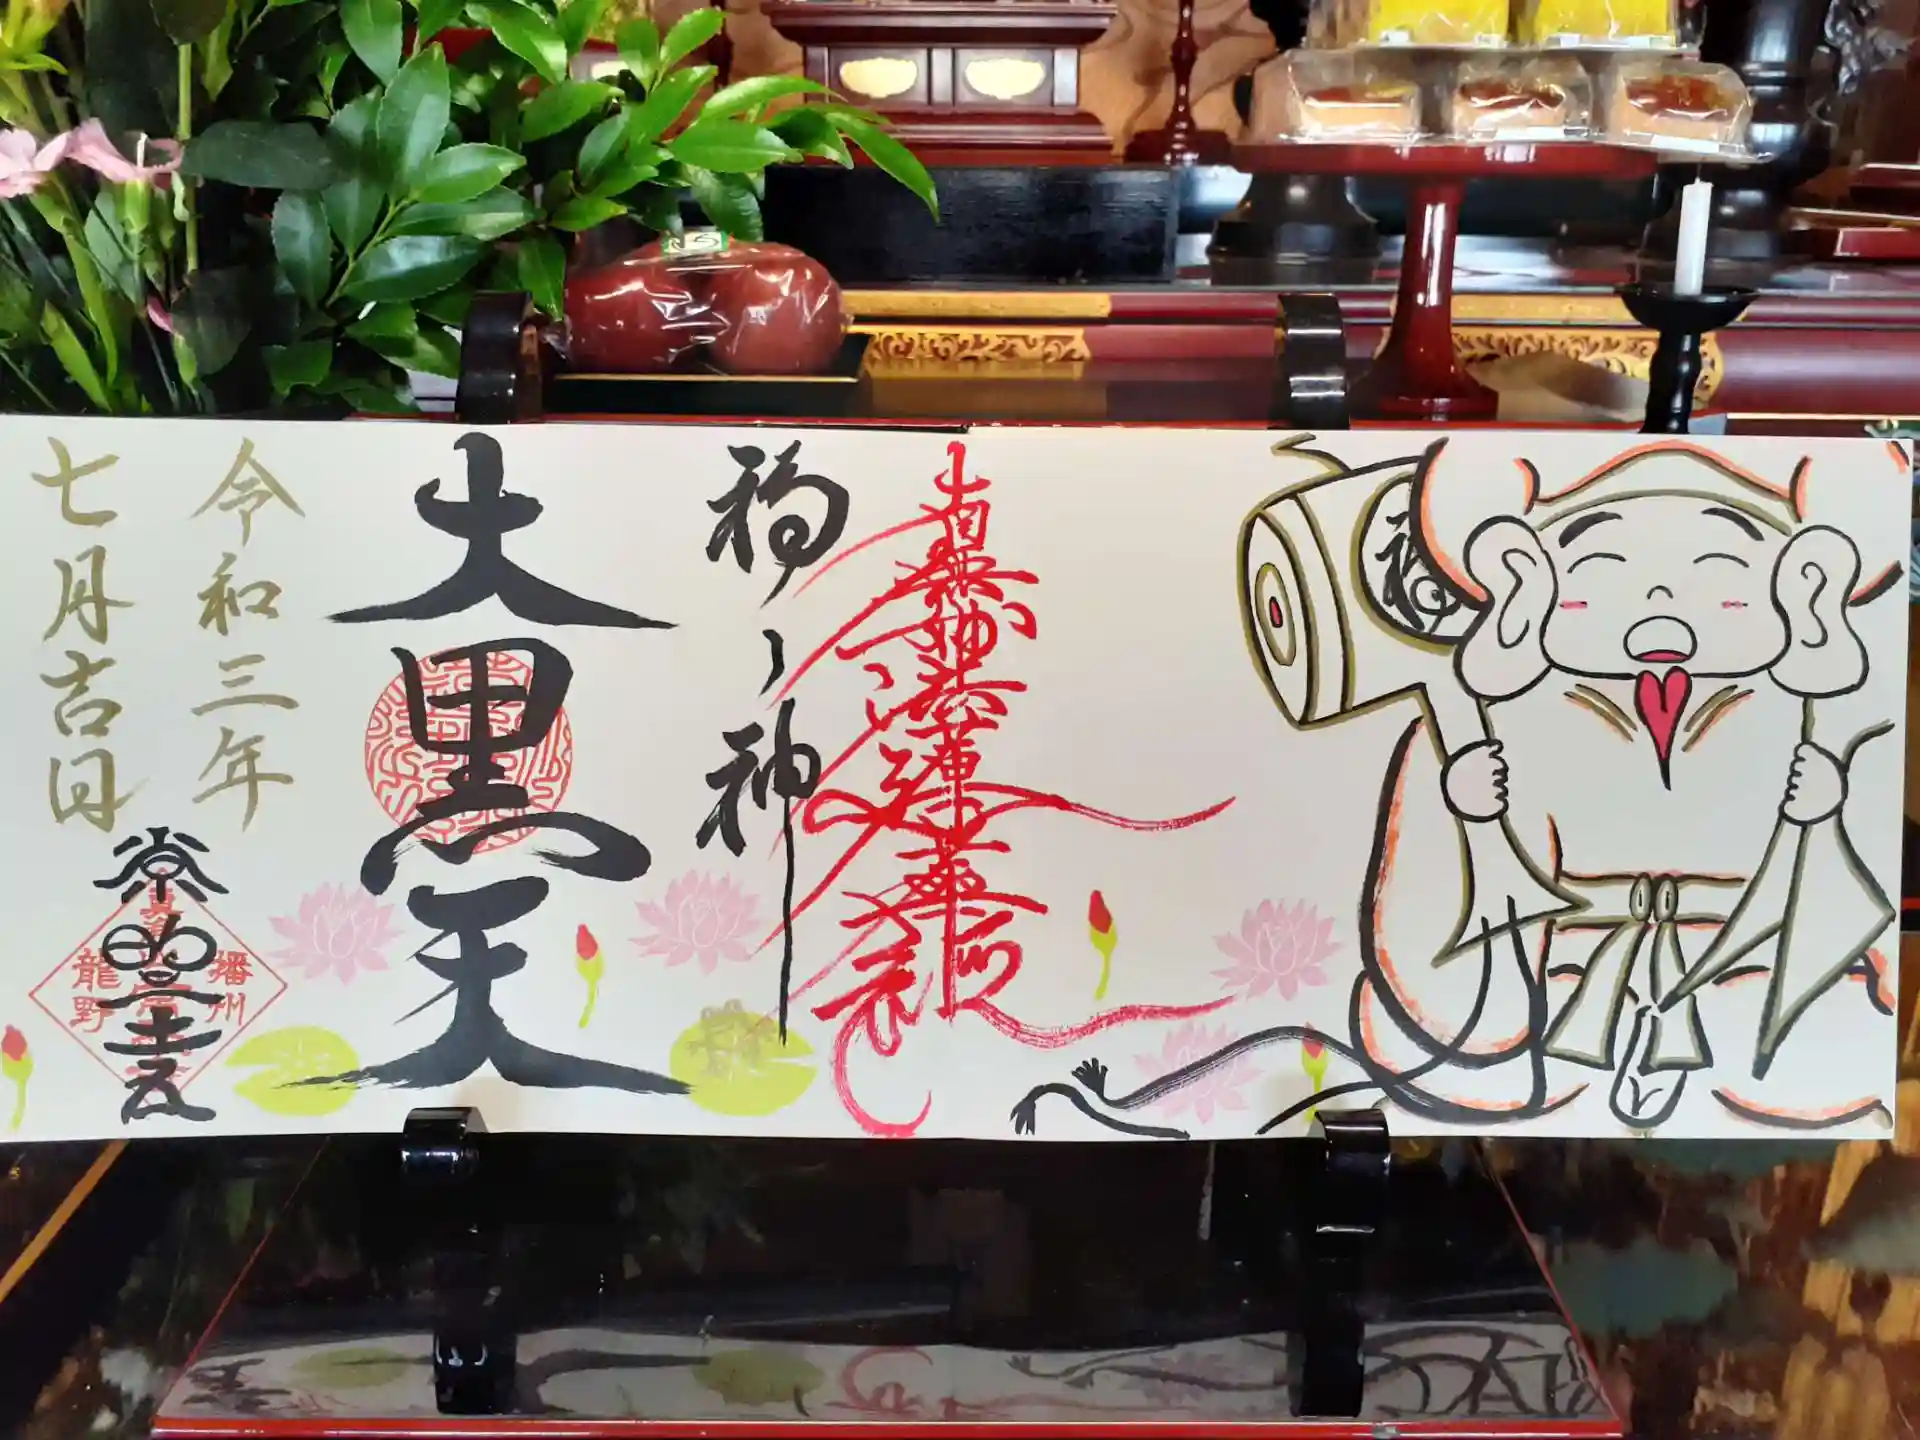 南無妙法蓮華経
福ノ神
大黒天
令和三年
七月吉日
播州
龍野
福